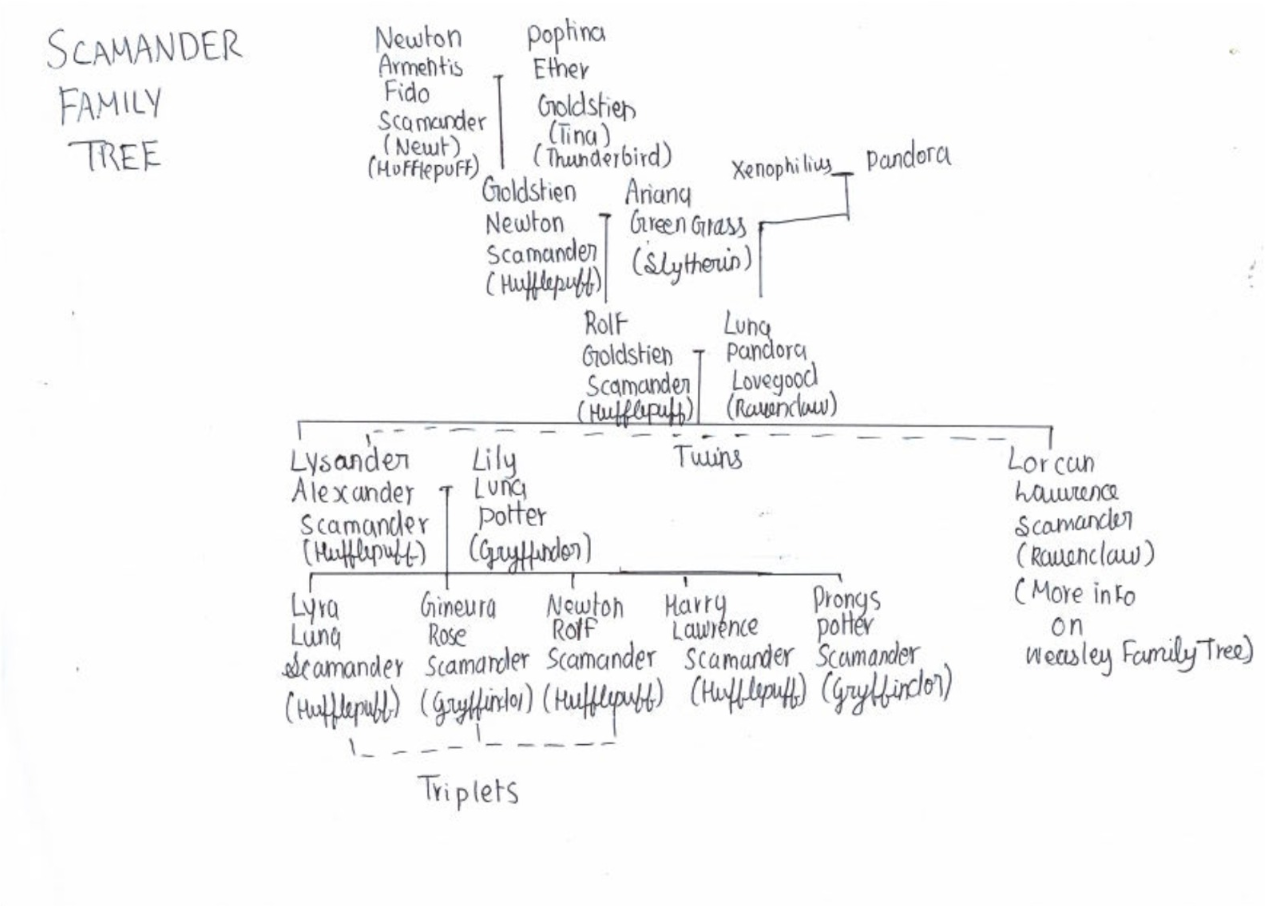 SCAMANDER
FAMILY
TREE
Newton
Armentis
Fido
Scamander
(Newt)
(Hufflepuff)
Poptina
Ether
Goldstien
(Tina)
(Thunderbird)
Xenophilius
Pandora
Goldstien
Newton
Scamander
(Hufflepuff)
Ariana
Green Grass
(Slytherin)
Rolf
Goldstien
Scamander
(Hufflepuff)
Luna
Pandora
Lovegood
(Ravenclaw)
Lysander
Alexander
Scamander
(Hufflepuff)
Lily
Luna
Potter
(Gryffindor)
Twins
Lorcan
Lawrence
Scamander
(Ravenclaw)
(More info
on
Weasley Family Tree)
Lyra
Luna
Scamander
(Hufflepuff)
Ginevra
Rose
Scamander
(Gryffindor)
Newton
Rolf
Scamander
(Hufflepuff)
Harry
Lawrence
Scamander
(Hufflepuff)
Prongs
Potter
Scamander
(Gryffindor)
Triplets